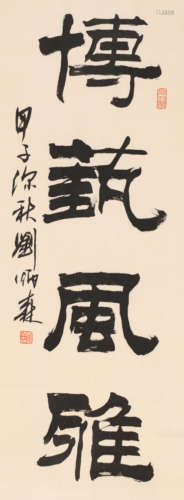 博藝風雅
甲子深秋劉炳森